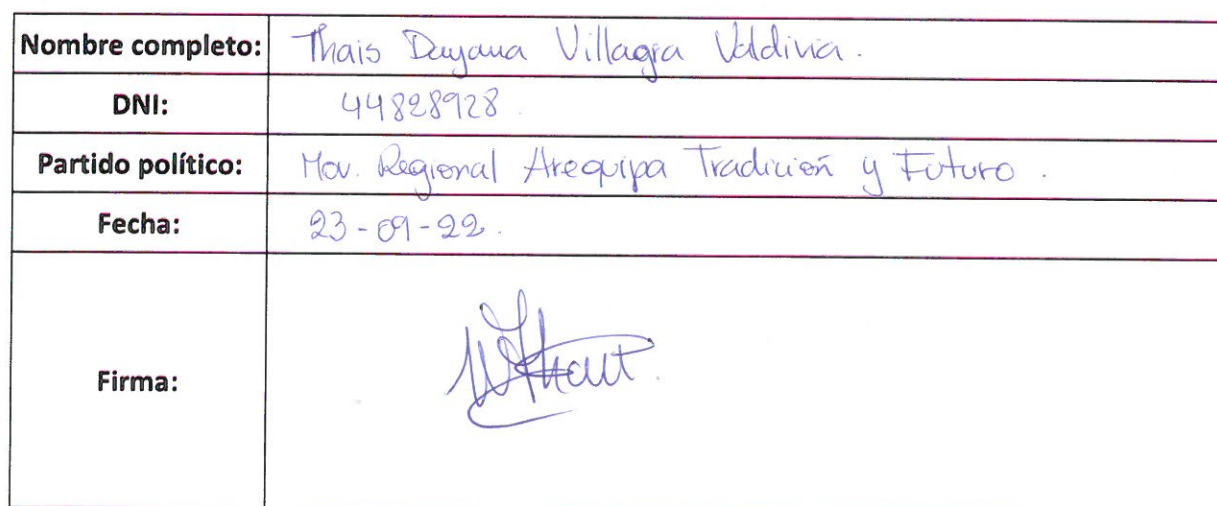 Nombre completo: Thais Dayana Villagra Valdivia.
DNI: 44828928.
Partido político: Mov. Regional Arequipa Tradición y Futuro.
Fecha: 23-09-22.
Firma: